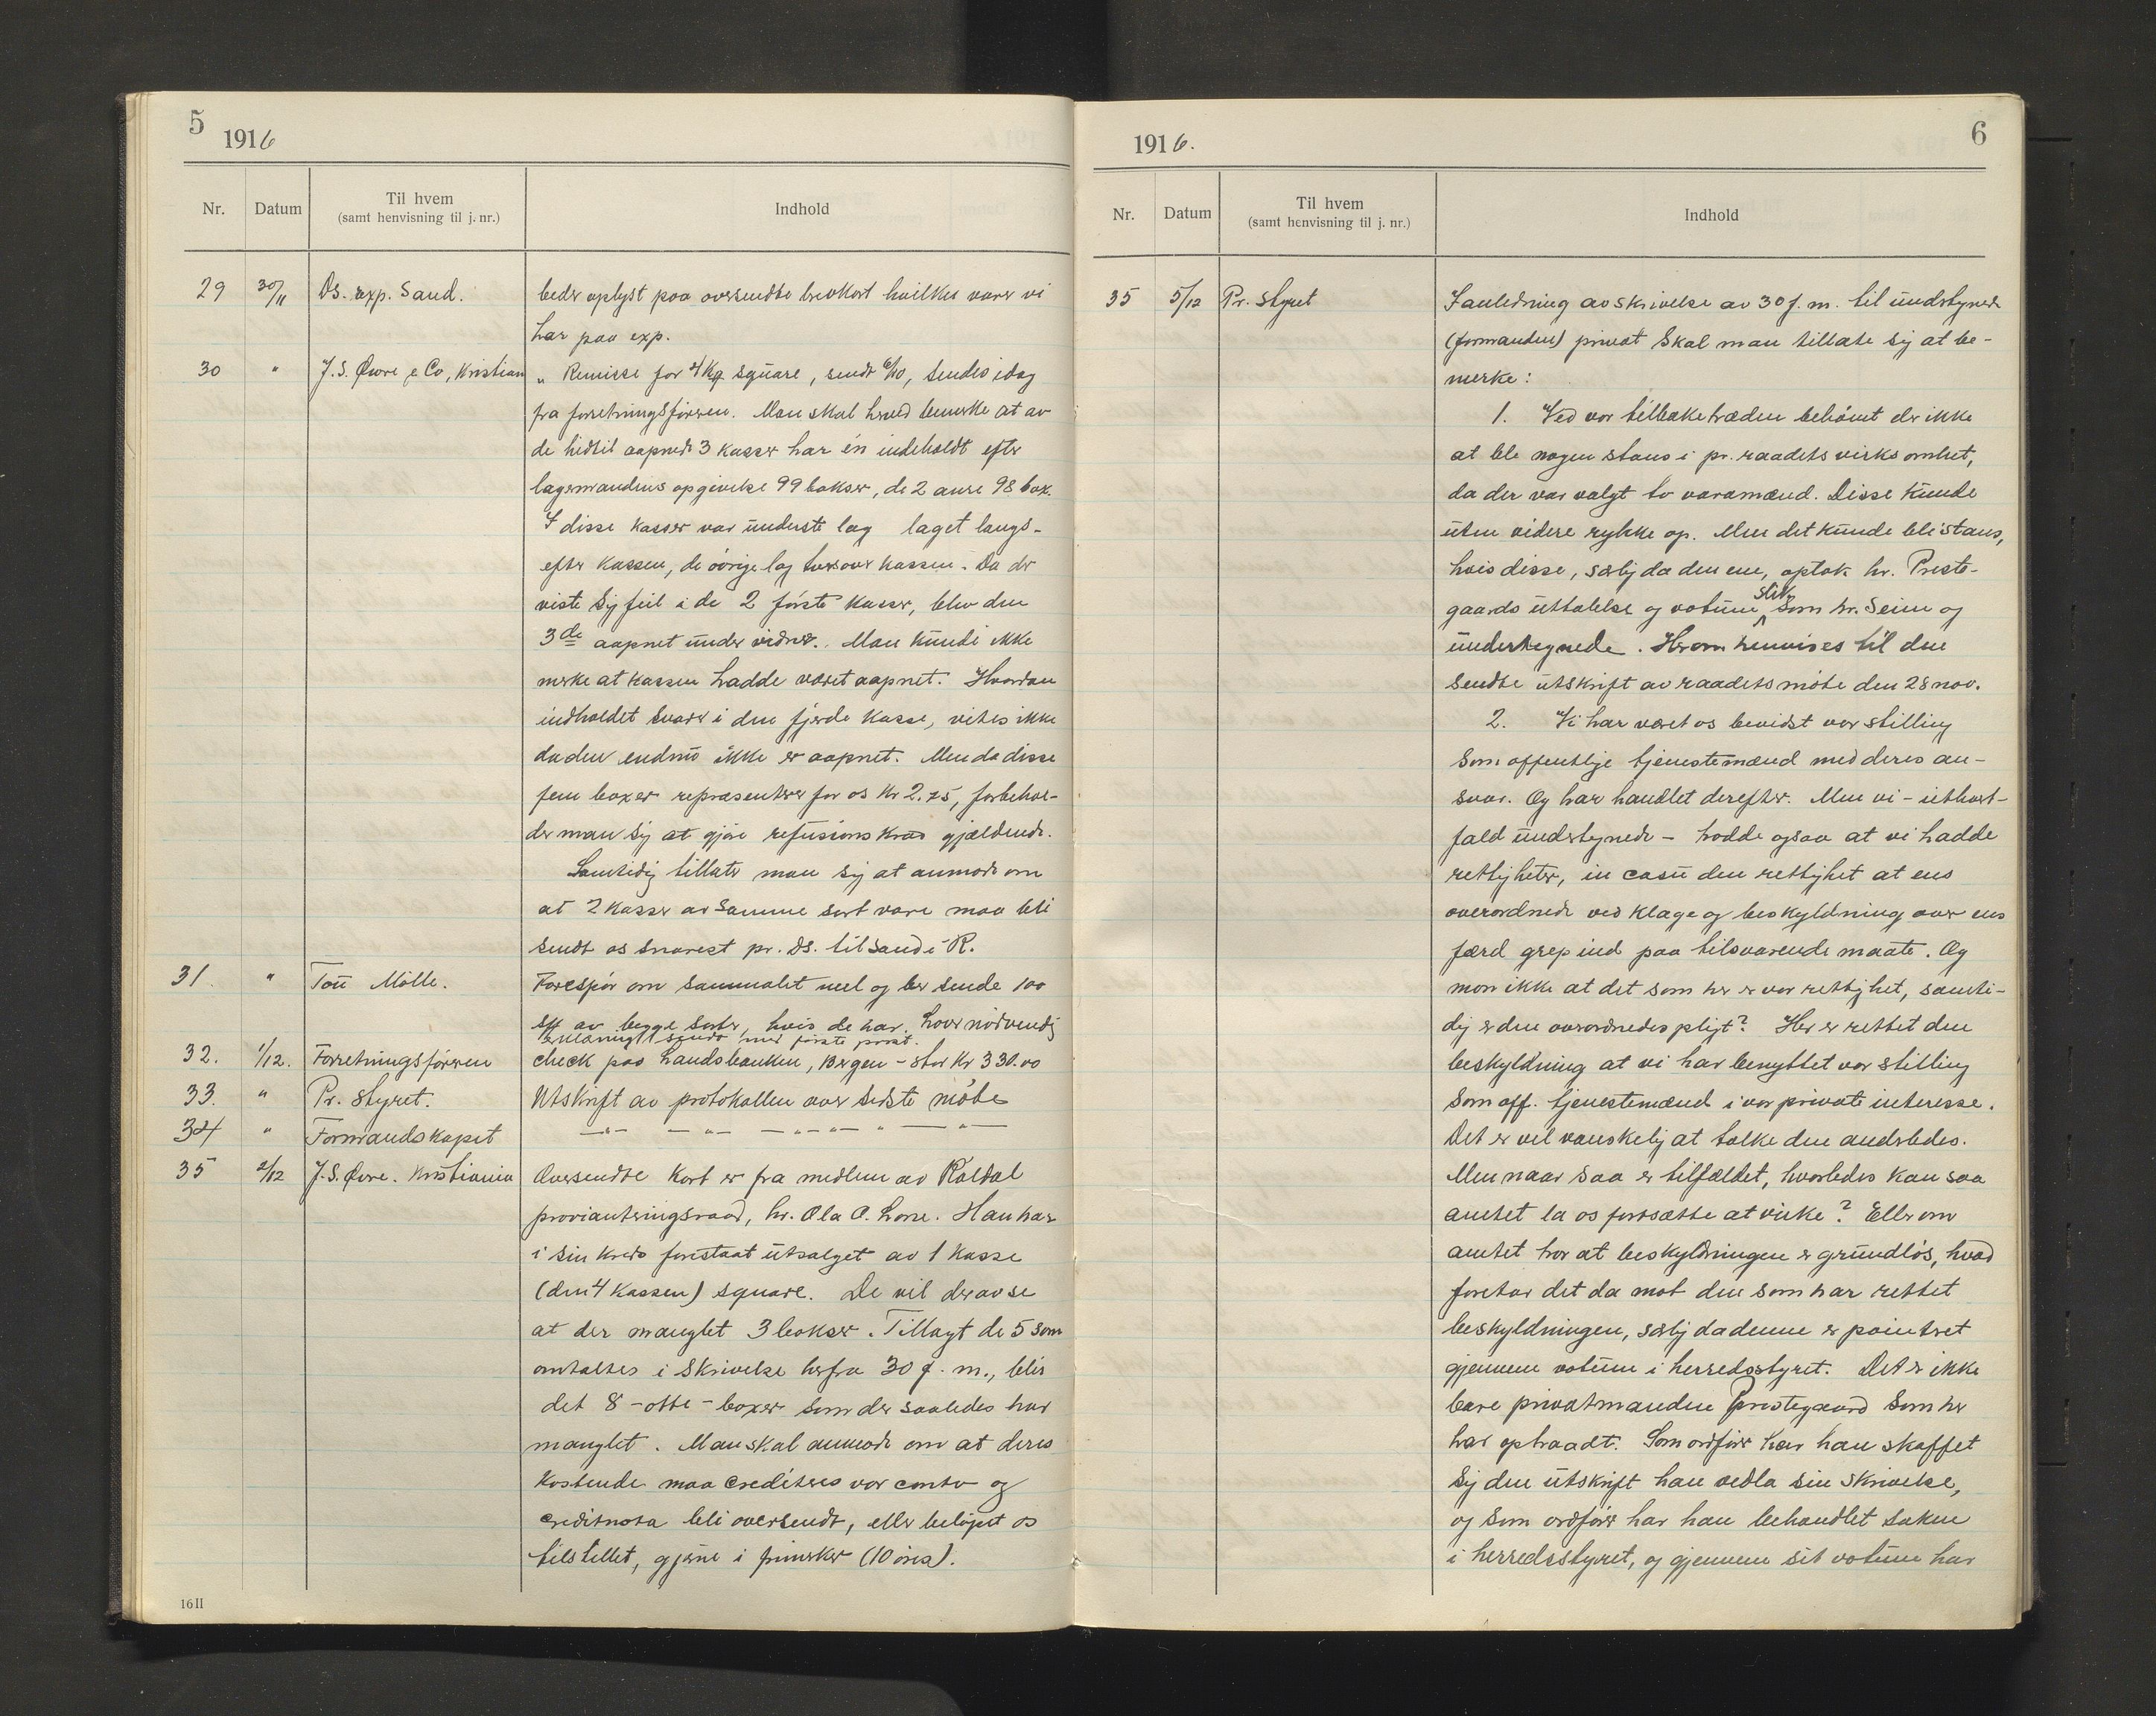 5
1916
Nr. Datum Til hvem Indhold
(samt henvisning til j. nr.)
29 30/11 Ds. exp. Sand. beder oplyst paa oversendte brevkort hvilke varer vi
har paa exp.
30 " J. S. Øvre & Co, Kristian " Remisse for 4 Kg square, sendt 6/10, sendes idag
fra forretningsföreren. Man skal herved bemerke at av
de hidtil aapnede 3 kasser har én indeholdt efter
lagermandens opgivelse 99 bokser, de 2 anre 98 box.
I disse kasser var underste lag laget langs-
efter kassen, de övrige lag tversover kassen. Da der
viste sig feil i de 2 förste kasser, blev den
3de aapnet under vidner. Man kunde ikke
merke at kassen hadde været aapnet. Hvordan
indholdet svarer i den fjerde kasse, vites ikke
da den endnu ikke er aapnet. Men da disse
fem boxer repræsenterer for os Kr 2.75, forbehol-
der man sig at gjöre refusionskrav gjældende.
Samtidig tillater man sig at anmode om
at 2 kasser av samme sort vare maa bli
sendt os snarest pr. Ds. til Sand i R.
31. " Tou Mölle. Forespör om sammalet mel og ber sende 100
sk av begge sorter, hvis de har.
sendt med förste post.
32. 1/12. Forretningsföreren check paa Landsbanken, Bergen - stor Kr 330.00
33. " Pr. Styret. Utskrift av protokollen over sidste möte
34 " Formandskapet — " — — " — — " — " — " — " —
35 2/12 J. S. Øvre. Kristiania Oversendte kort er fra medlem av Röldal
provianteringsraad, hr. Ola O. Lone. Han har
i sin kreds forestaat utsalget av 1 kasse
(den 4 kassen) square. De vil derav se
at der manglet 3 bokser. Tillagt de 5 som
omtaltes i skrivelse herfra 30 f. m., blir
det 8 - otte - boxer som der saaledes har
manglet. Man skal anmode om at deres
kostende maa crediteres vor conto og
creditnota bli oversendt, eller belöpet os
tilstillet, gjerne i frimerker (10 öres).
16 II
1916.
6
Nr. Datum Til hvem Indhold
(samt henvisning til j. nr.)
35 5/12 Pr. Styret I anledning av skrivelse av 30 f. m. til undertegnede
(formanden) privat skal man tillate sig at be-
merke:
1. Ved vor tilbaketræden behövet der ikke
at ble nogen stans i pr. raadets virksomhet,
da der var valgt to varamænd. Disse kunde
uten videre rykke op. Men det kunde bli stans,
hvis disse, særlig da den ene, optok hr. Preste-
gaards uttalelse og votum slik som hr. Seim og
undertegnede. Herom henvises til den
sendte utskrift av raadets möte den 28 nov.
2. Vi har været os bevidst vor stilling
som offentlige tjenestemænd med deres an-
svar. Og har handlet derefter. Men vi - iethvert-
fald undertegnede - trodde ogsaa at vi hadde
rettigheter, in casu den rettighet at ens
overordnede ved klage og beskyldning over ens
færd grep ind paa tilsvarende maate. Og
mon ikke at det som her er vor rettighet, samti-
dig er den overordnedes pligt? Her er rettet den
beskyldning at vi har benyttet vor stilling
som off. tjenestemænd i vor private interesse.
Det er vel vanskelig at tolke den anderledes.
Men naar saa er tilfældet, hvorledes kan saa
amtet la os fortsætte at virke? Eller om
amtet tror at beskyldningen er grundlös, hvad
foretar det da mot den som har rettet
beskyldningen, særlig da denne er pointeret
gjennem votum i herredsstyret. Det er ikke
bare privatmanden Prestegaard som her
har optraadt. Som ordförer har han skaffet
sig den utskrift han vedla sin skrivelse,
og som ordförer har han behandlet saken
i herredsstyret, og gjennem sit votum har